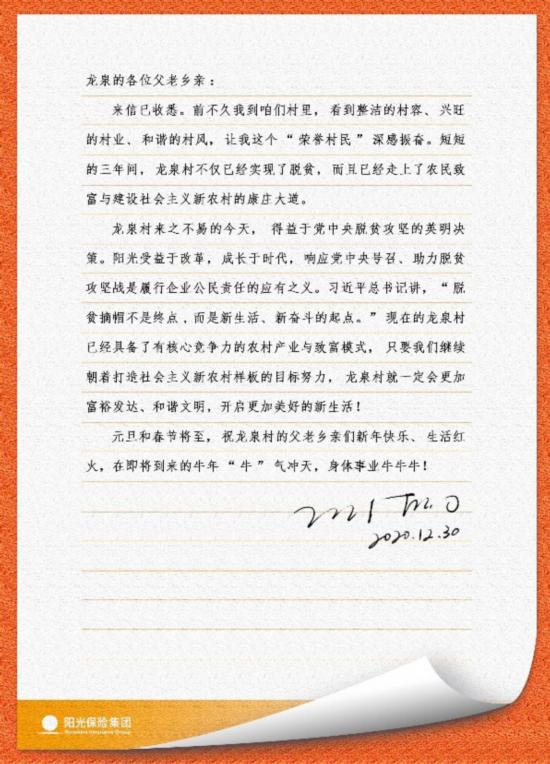 龙泉的各位父老乡亲：
来信已收悉。前不久我到咱们村里，看到整洁的村容、兴旺
的村业、和谐的村风，让我这个“荣誉村民”深感振奋。短短
的三年间，龙泉村不仅已经实现了脱贫，而且已经走上了农民致
富与建设社会主义新农村的康庄大道。
龙泉村来之不易的今天，得益于党中央脱贫攻坚的英明决
策。阳光受益于改革，成长于时代，响应党中央号召、助力脱贫
攻坚战是履行企业公民责任的应有之义。习近平总书记讲，“脱
贫摘帽不是终点，而是新生活、新奋斗的起点。”现在的龙泉村
已经具备了有核心竞争力的农村产业与致富模式，只要我们继续
朝着打造社会主义新农村样板的目标努力，龙泉村就一定会更加
富裕发达、和谐文明，开启更加美好的新生活！
元旦和春节将至，祝龙泉村的父老乡亲们新年快乐、生活红
火，在即将到来的牛年“牛”气冲天，身体事业牛牛牛！
2020.12.30
阳光保险集团
Sunshine Insurance Group